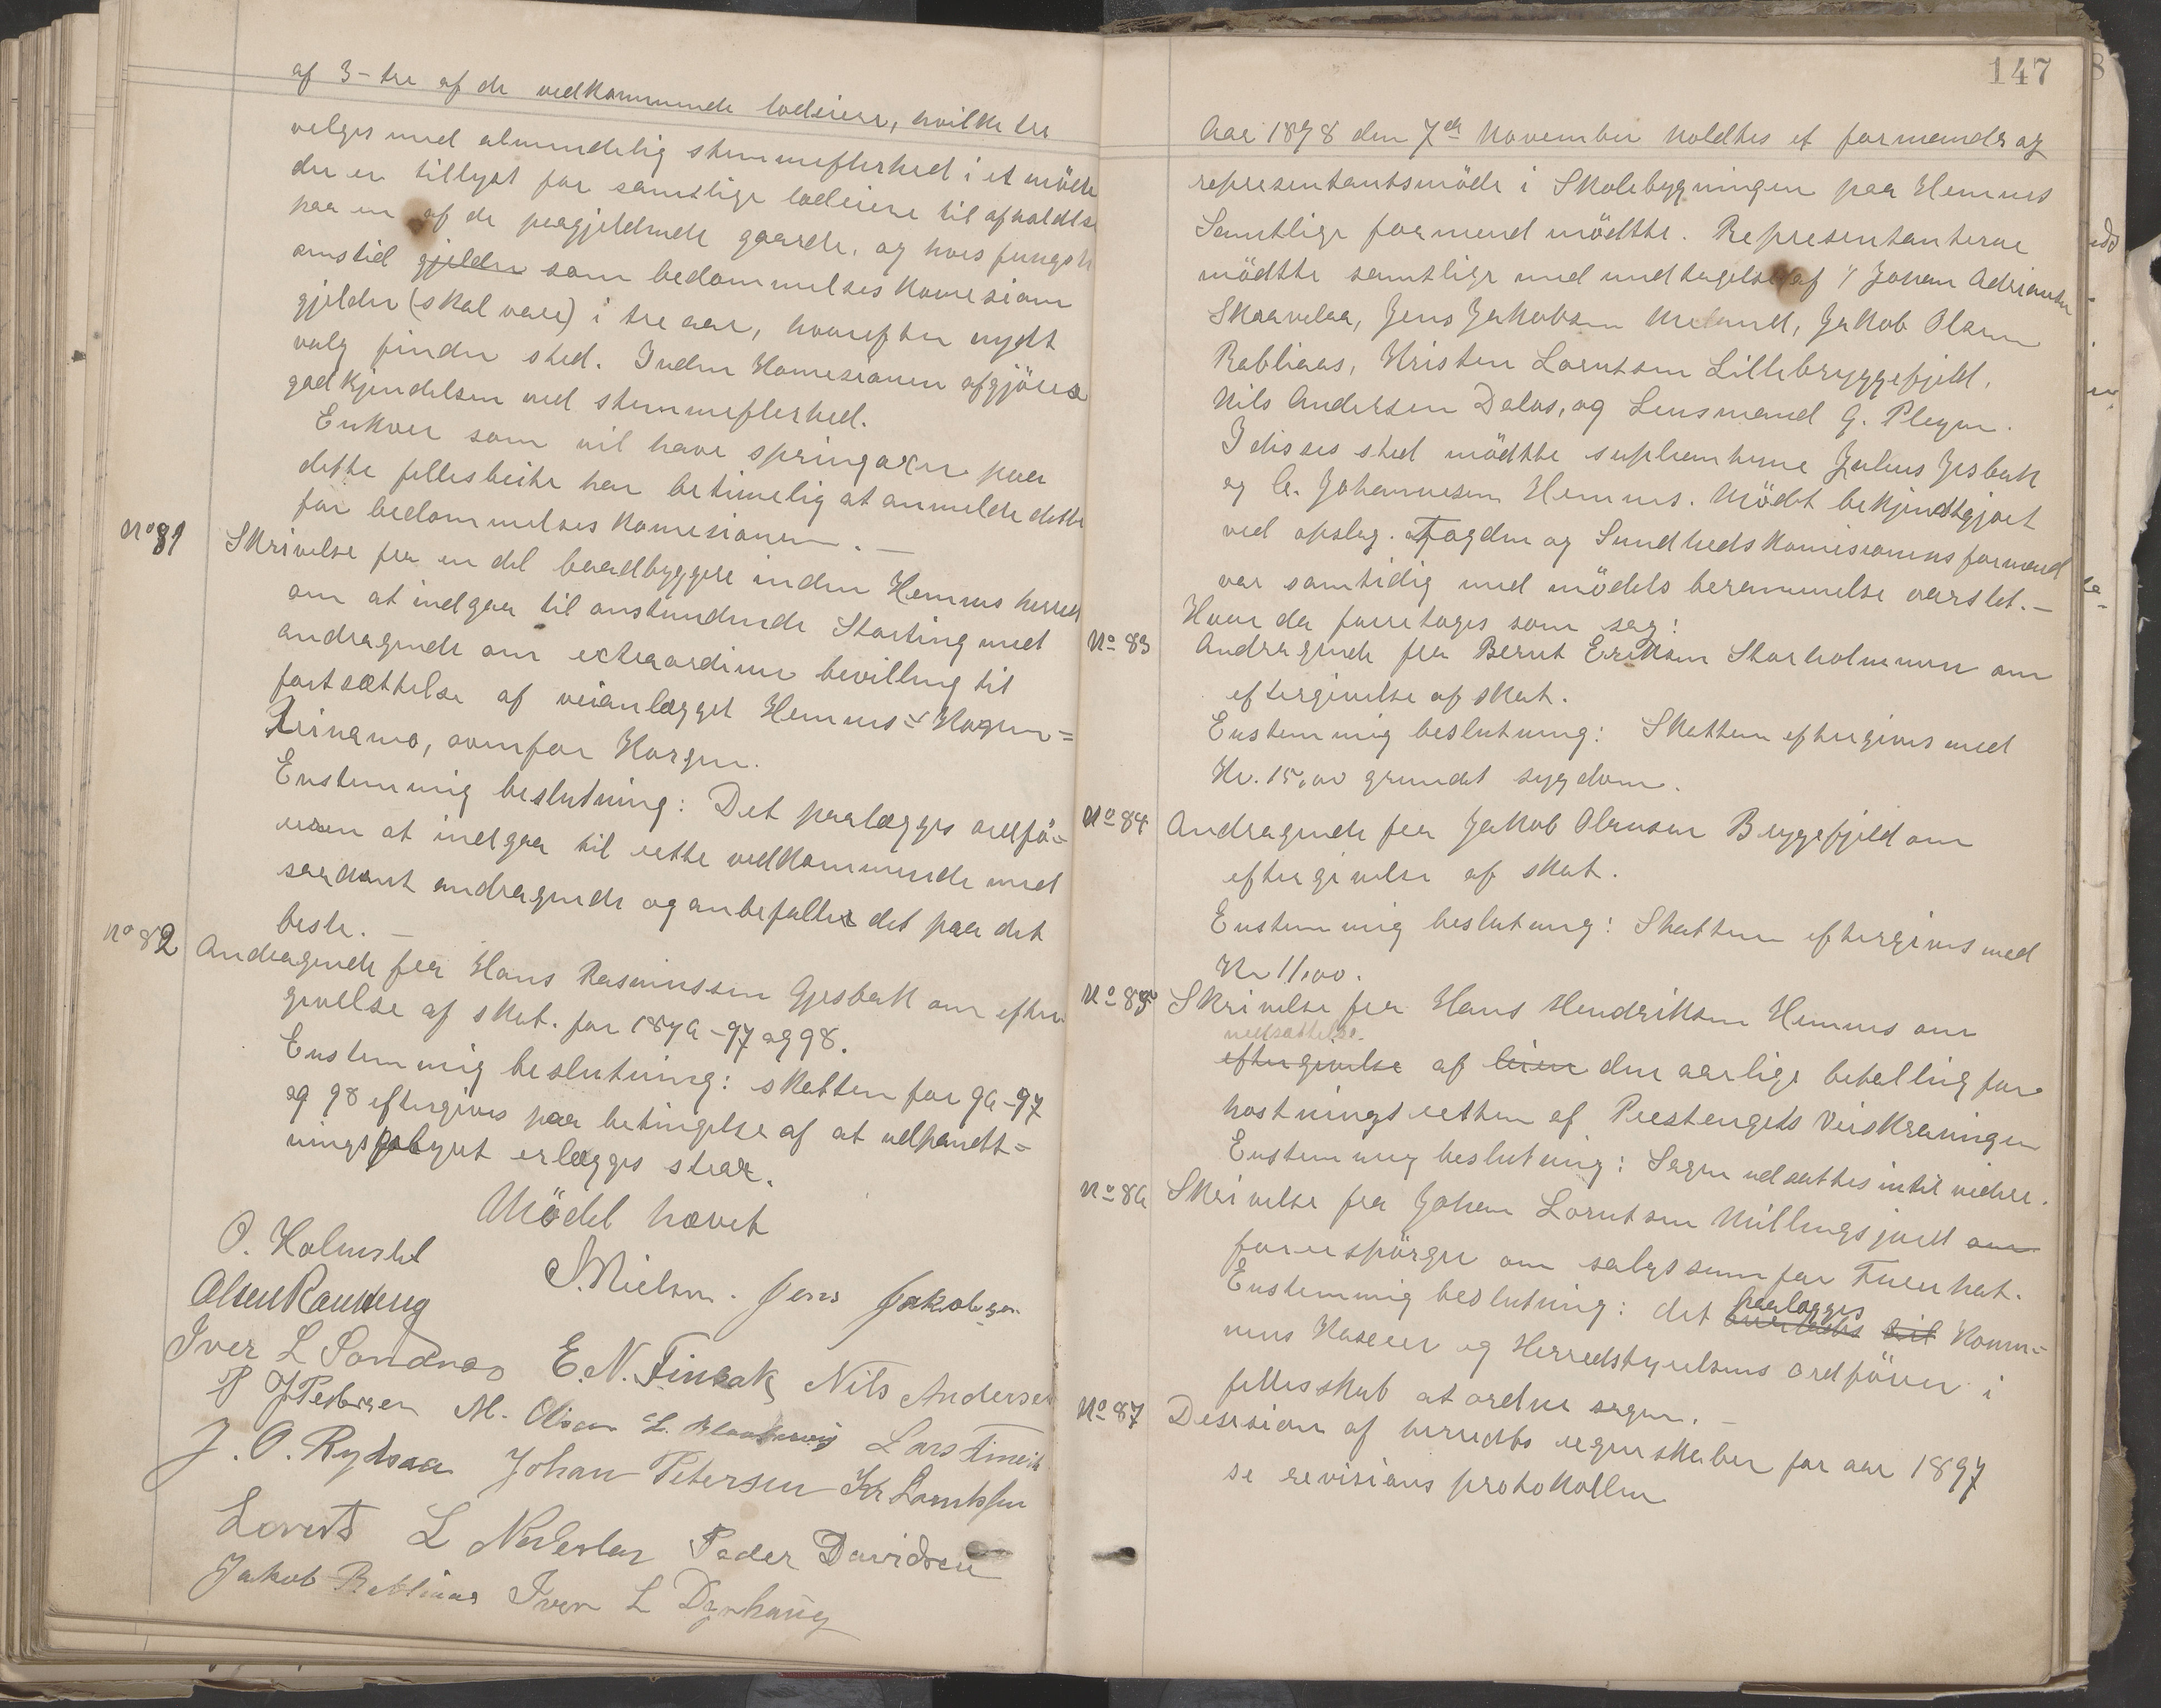 af 3 - tre af de vedkommende lodeiere, hvilke tre
velges med almindelig stemmeflerhed i et möde
der er tillyst for samtlige lodeiere til afholdelse
paa en af de paagjeldende gaarde. og hves fungsh
onstid gjelder som bedömmelses Komesion
gjelder (skal være) i tre aar, hvorefter nydt
valg finder sted. Inden Komesionen afgjöres
godkjendelsen ved stemmeflerhed.
Enhver som vil have springoxer paa
dette fellesbeite har betimelig at anmelde dette
for bedömmelses Komesionen. —
No 81 Skrivelse fra en del baadbyggere inden Hemnes herred
om at indgaa til anstundende Storting med
andragende om extraordinær bevilling til
fortsættelse af veianlægget Hemnes - Korgen =
Leirnamo, ovenfor Korgen.
Enstemmig beslutning: Det paalægges ordfö-
reren at indgaa til rette vedkommende med
saadant andragende og anbefalles det paa det
beste. —
No 82 Andragende fra Hans Rasmussen Gjesbak om efter
givelse af skat. for 1896 - 97 og 98.
Enstemmig beslutning: skatten for 96 - 97
og 98 eftergives paa betingelse af at udpandt =
ningsgebyret erlægges strax.
Mödet hævet
O. Holmstel
S. Nielsen. Jens Jakobsen
Olsen Ranheng
Iver L Sandnes E. N. Finbak Nils Andersen
P J Pedersen M. Olsen Lars Finei
J. O. Rydsaa Johan Petersen Kr Lorntsen
Lornts L Nederlær Peder Davidsen
Jakob Rabliaas Iver L Dahaug
147
Aar 1898 den 7de November holdtes et formands og
representantsmöde i Skolebygningen paa Hemnes
Samtlige formend mödtte. Representanterne
mödtte samtlige med undtagelse af 1/ Johan Adriansen
Skaavelaa, Jens Jakobsen Meland, Jakob Olsen
Rabliaas, Kristen Lorntsen Lillebryggefjeld,
Nils Andersen Dalos, og Lensmand G. Pleym.
I disses sted mödtte suplenterne Julius Jesbak
og C. Johannesen Hemnes. Mödet bekjendtgjort
ved opslag. Fogden og Sundhedskomisionens formand
var samtidig med mödets berammelse varslet. —
Hvor da foretages som sag:
No 83 Andragende fra Bernt Eriksen Storholmmen om
eftergivelse af skat.
Enstemmig beslutning: Skatten eftergives med
Kr. 15,00 grundet sygdom.
No 84 Andragende fra Jakob Olausen Bryggefjeld om
eftergivelse af skat.
Enstemmig beslutning: Skatten eftergives med
Kr 11,00.
No 85 Skrivelse fra Hans Hendriksen Hemnes om
nedsættelse.
eftergivelse af leien den aarlige betalling for
høstningsretten af Prestengets Veiskraaninger
Enstemmig beslutning: Sagen udsattes intil videre.
No 86 Skrivelse fra Johan Lorntsen Millingsjord om
forespörger om salgssum for Fuenhat.
Enstemmig beslutning: det paalægges
overlades til Komm-
unens Kaserer og Herredstyrelsens ordförer i
fellesskab at ordne sagen. —
No 87 Desision af herredts regnskaber for aar 1897
se revisions protokollen